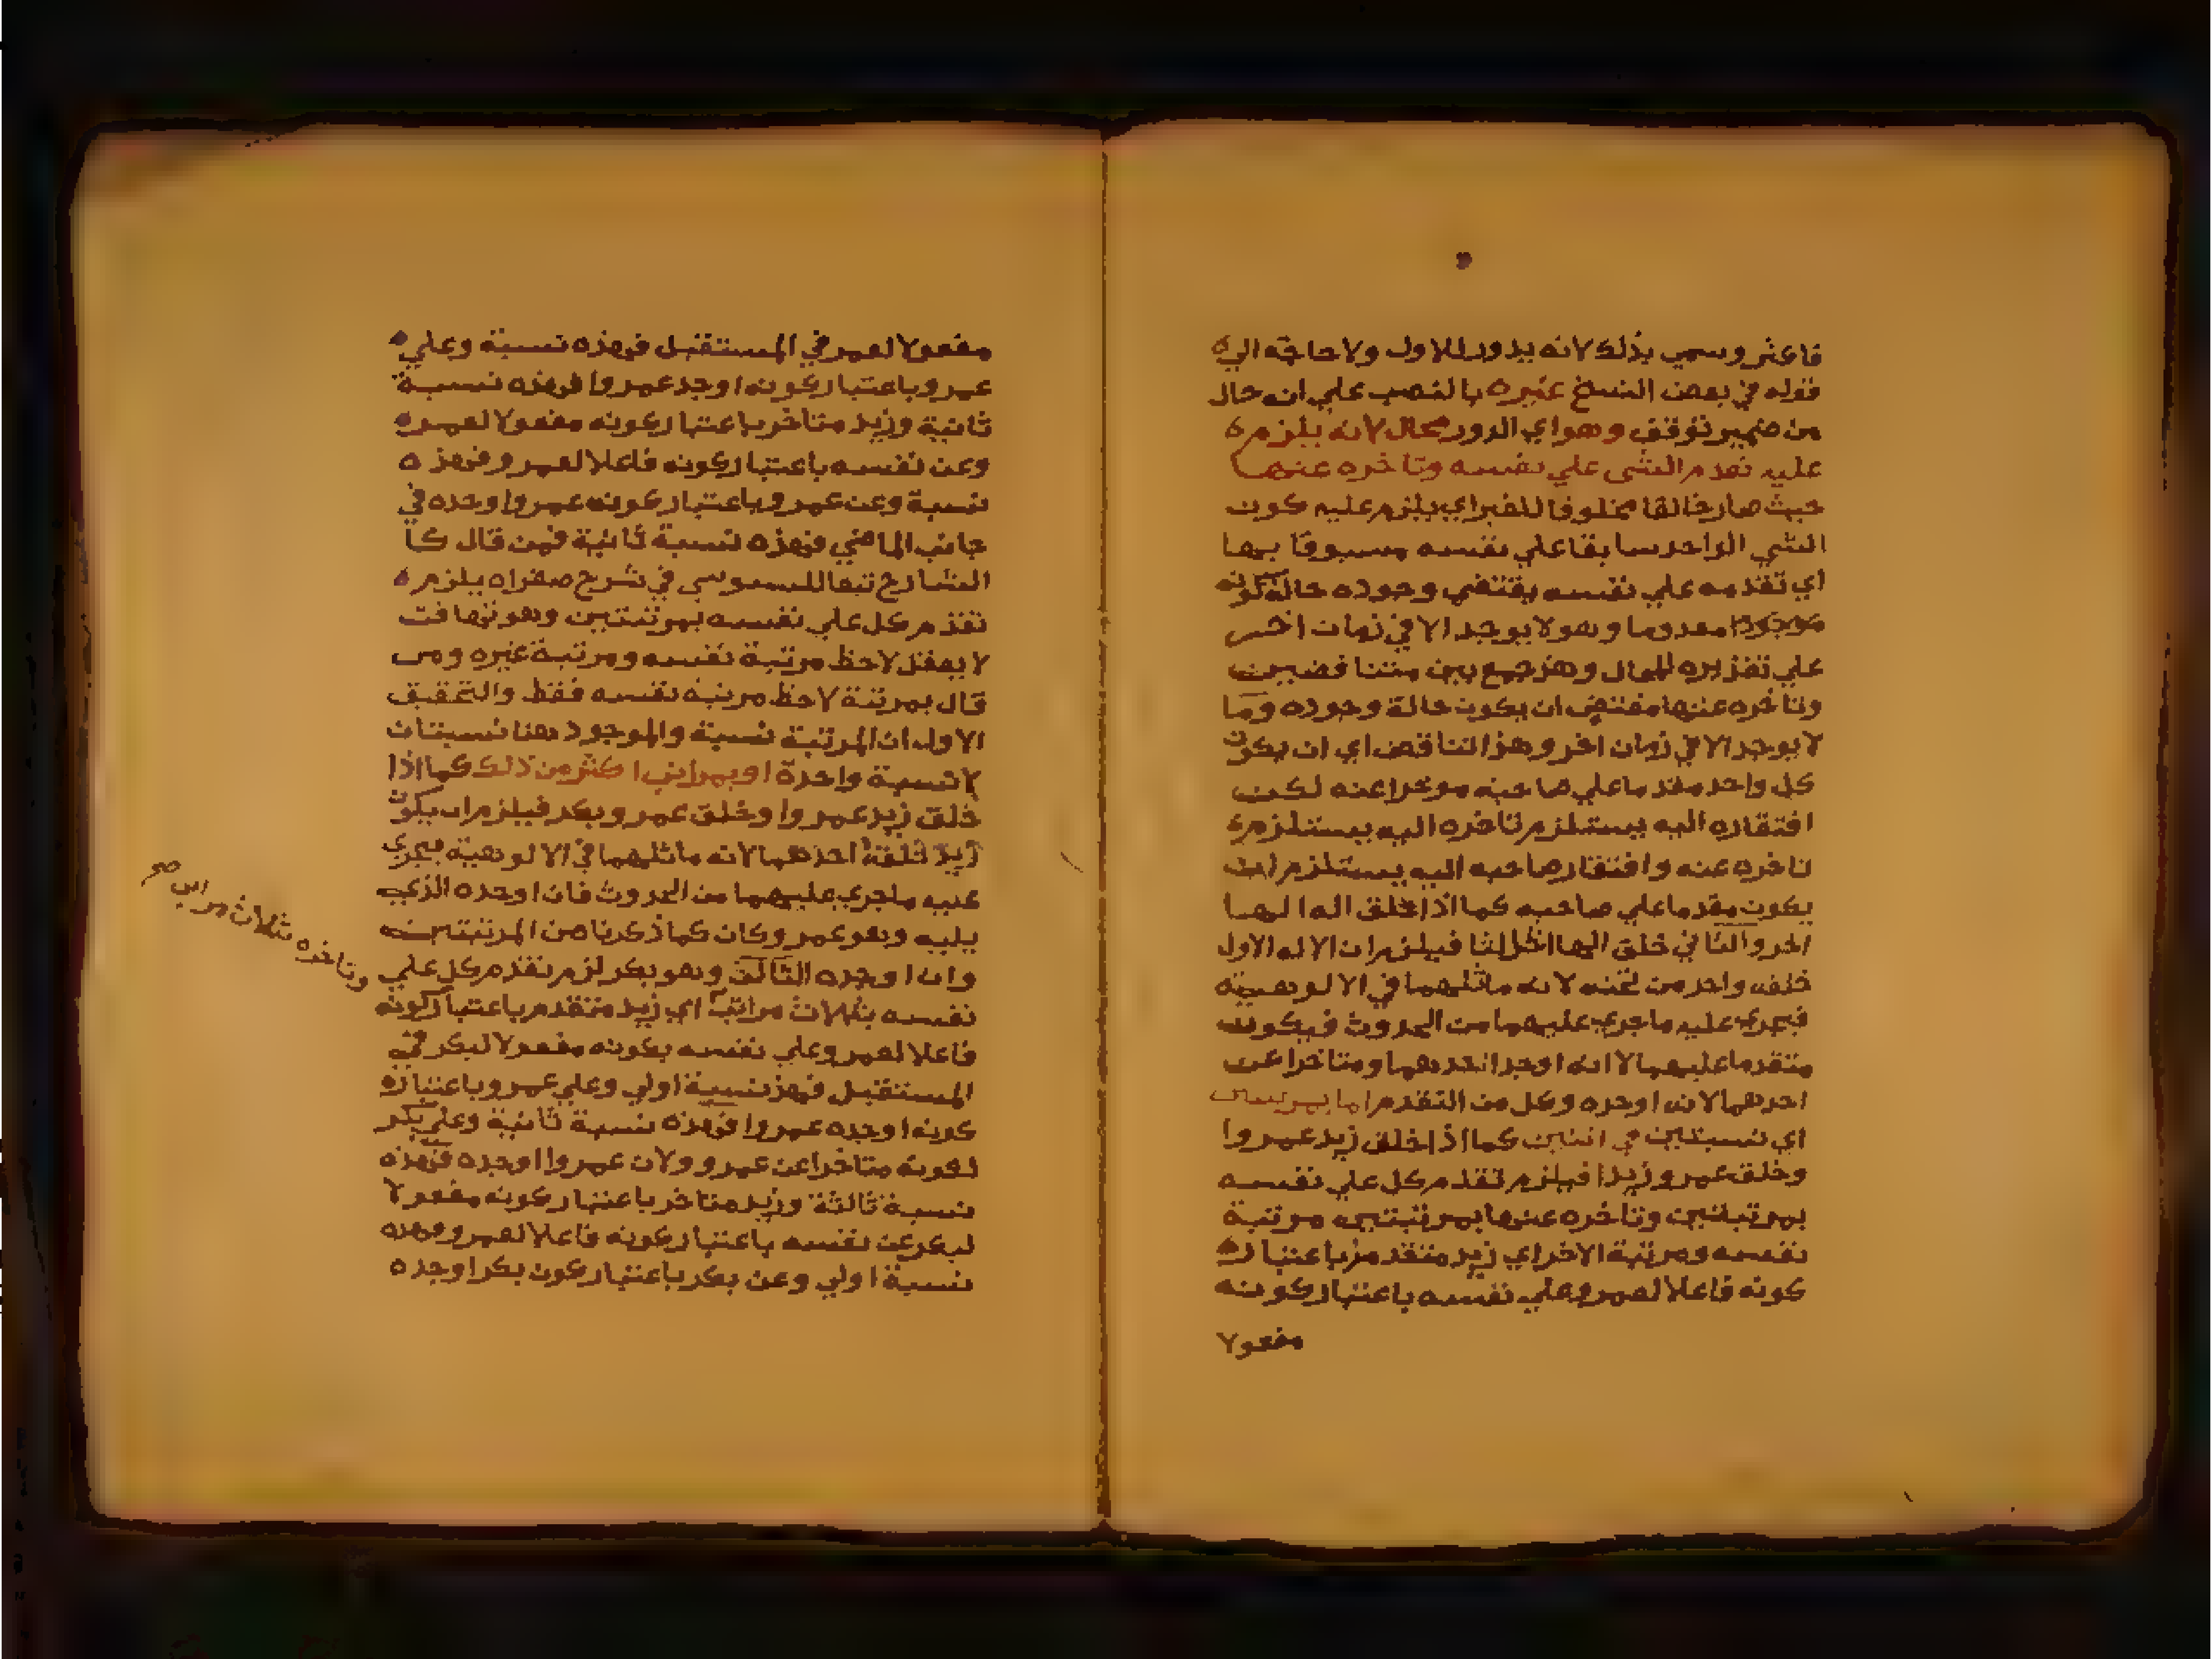 فاعثر وسمي بذلك لانه يدور للاول ولا حاجة الي
قوله في بعض النسخ عنيره بالنصب علي انه حال
من ضمير توقف وهو اي الدور محال لانه يلزم
عليه تقدم الشي علي نفسه وتاخره عنها
حيث صار خالقا مخلوقا للغير اي يلزم عليه كون
الشي الواحد سابقا علي نفسه مسبوقا بها
اي تقدمه علي نفسه يقتضي وجوده حالة كونه
موجودا معدوما وهو لا يوجد الا في زمان اخر
علي تقديره المحال وهذ جمع بين متناقضين
وتاخره عنها مقتضي ان يكون حالة وجوده وما
لا يوجد الا في زمان اخر وهذا التناقض اي ان يكون
كل واحد مقدما علي صاحبه موخرا عنه لكن
افتقاره اليه يستلزم تاخره اليه يستلزم
تاخره عنه وافتقار صاحبه اليه يستلزم ان
يكون مقدما علي صاحبه كما اذا خلق اله الها
اخر والثاني خلق الها ثالثا فيلزم ان الاله الاول
خلقه واحد من لانه ماثلهما في الالوهية
فيجري عليه ماجري عليهما من الحدوث فيكون
متقدما عليهما لانه اوجد احدهما ومتاخرا عن
احدهما لانه اوجده وكل من التقدم اما بمرتبتين
اي نسبتين في اثنين كما اذا خلق زيد عمروا
وخلق عمرو زيدا فيلزم تقدم كل علي نفسه
بمرتبتين وتاخره عنها بمرتبتين مرتبة
نفسه ومرتبة الاخر اي زيد متقدم باعتبار
كونه فاعلا لعمرو علي نفسه باعتبار كونه
مفعولا
مفعولا لعمر في المستقبل فهذه نسبة وعلي
عمرو باعتبار كونه اوجد عمروا فهذه نسبة
ثانية وزيد متاخر باعتبار كونه مفعولا لعمر
وعن نفسه باعتبار كونه فاعلا لعمرو فهذه
نسبة وعن عمرو باعتبار كونه عمروا وجده في
جانب الماضي فهذه نسبة ثانية فمن قال كا
الشارح تبعا للسنوسي في شرح صغراه يلزم
تقدم كل علي نفسه بمرتبتين وهو تهافت
لا يعقل لاحظ مرتبة نفسه ومرتبة غيره ومن
قال بمرتبة لاحظ مرتبة نفسه فقط والتحقيق
الاول ان المرتبة نسبة والموجود هنا نسبتان
لا نسبة واحدة او بمراتب اكثر من ذلك كما اذا
خلق زيد عمروا وخلق عمرو بكر فيلزم ان يكون
زيد خلقه احدهما لانه ماثلهما في الالوهية يجري
عليه ماجري عليهما من الحدوث فان اوجده الذي
يليه وهو عمرو كان كما ذكرنا من المرتبتين
وان اوجده الثالث وهو بكر لزم تقدم كل علي
نفسه بثلاث مراتب اي زيد متقدم باعتبار كونه
وتاخره بثلاث مراتب صح
فاعلا لعمرو علي نفسه بكونه مفعولا لبكر في
المستقبل فهذ نسبة اولي وعلي عمرو باعتبار
كونه اوجده عمروا فهذه نسبة ثانية وعلي بكر
لكونه متاخرا عن عمرو ولان عمروا اوجده فهذه
نسبة ثالثة وزيد متاخر باعتبار كونه مفعولا
لبكر عن نفسه باعتبار كونه فاعلا لعمرو وهذه
نسبة اولي وعن بكر باعتبار كون بكر اوجده